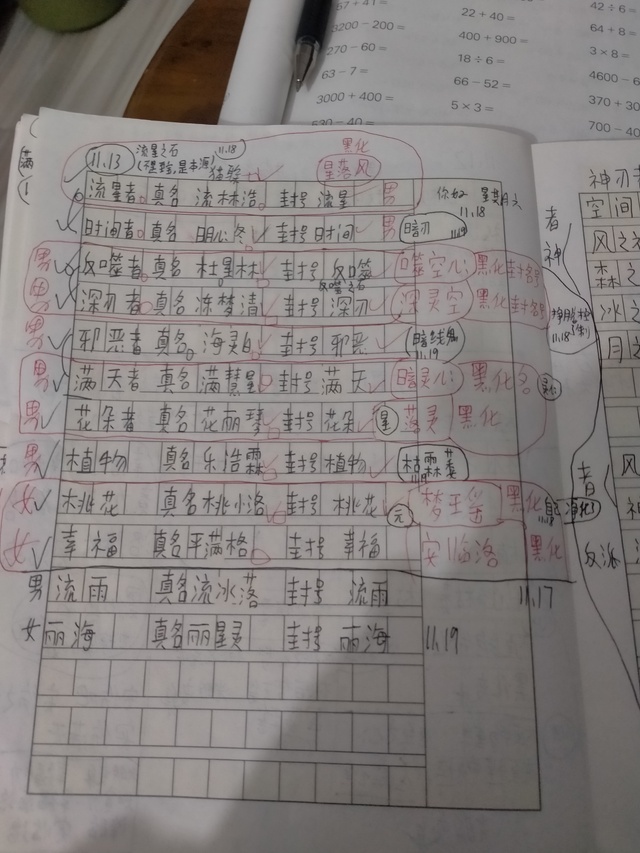 57+41=
3200-200=
270-60=
63-7=
3000+400=
530-40=
22+40=
400+900=
18÷6=
66-52=
5×3=
42÷6=
64+8=
3×8=
4600-6
370+30
700-40
满
11.13
流星之石
11.18
黑化
星落风
流星者 真名 流林浩 封号 流星 男
你好 星期之
11.18
时间者 真名 明心冬 封号 时间 暗刃
11.19
男 反噬者 真名 杜星林 封号 反噬 噬空心: 黑化封号
反噬之石
男 深刃者 真名 冻梦清 封号 深刃 深灵空 黑化封号
男 邪恶者 真名 海灵白 封号 邪恶
11.19
男 满天者 真名 满慧星 封号 满天 暗灵心: 黑化名
男 花朵者 真名 花丽琴 封号 花朵 星落灵 黑化
男 植物 真名 乐浩霖 封号 植物
女 桃花 真名桃小洛 封号 桃花 黑化
11.18
元
女 幸福 真名平满格 封号 幸福 安临洛 黑化
男 流雨 真名流冰落 封号 流雨 11.17
女 丽海 真名丽星灵 封号 丽海 11.19
者神
11.18
者
反派
神刃者
空间
风之
森之
冰之
月之
风
神